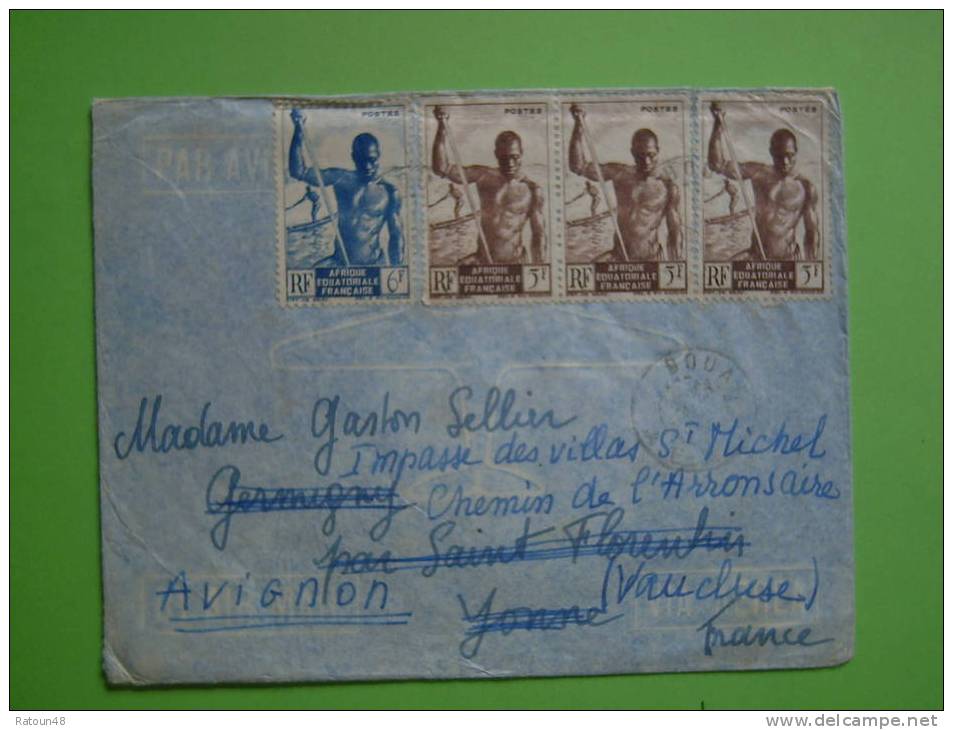 PAR AVI
POSTES
POSTES
POSTES
POSTES
RF AFRIQUE EQUATORIALE FRANÇAISE 6F
RF AFRIQUE EQUATORIALE FRANÇAISE 5F
RF AFRIQUE EQUATORIALE FRANÇAISE 5F
RF AFRIQUE EQUATORIALE FRANÇAISE 5F
BOUA
Madame Gaston Sellier
Impasse des villas St Michel
Germigny Chemin de l'Arronsaire
par Saint Florentin
AVIGNON (Vaucluse)
Yonne
France
VIA
Ratoun48
www.delcampe.net